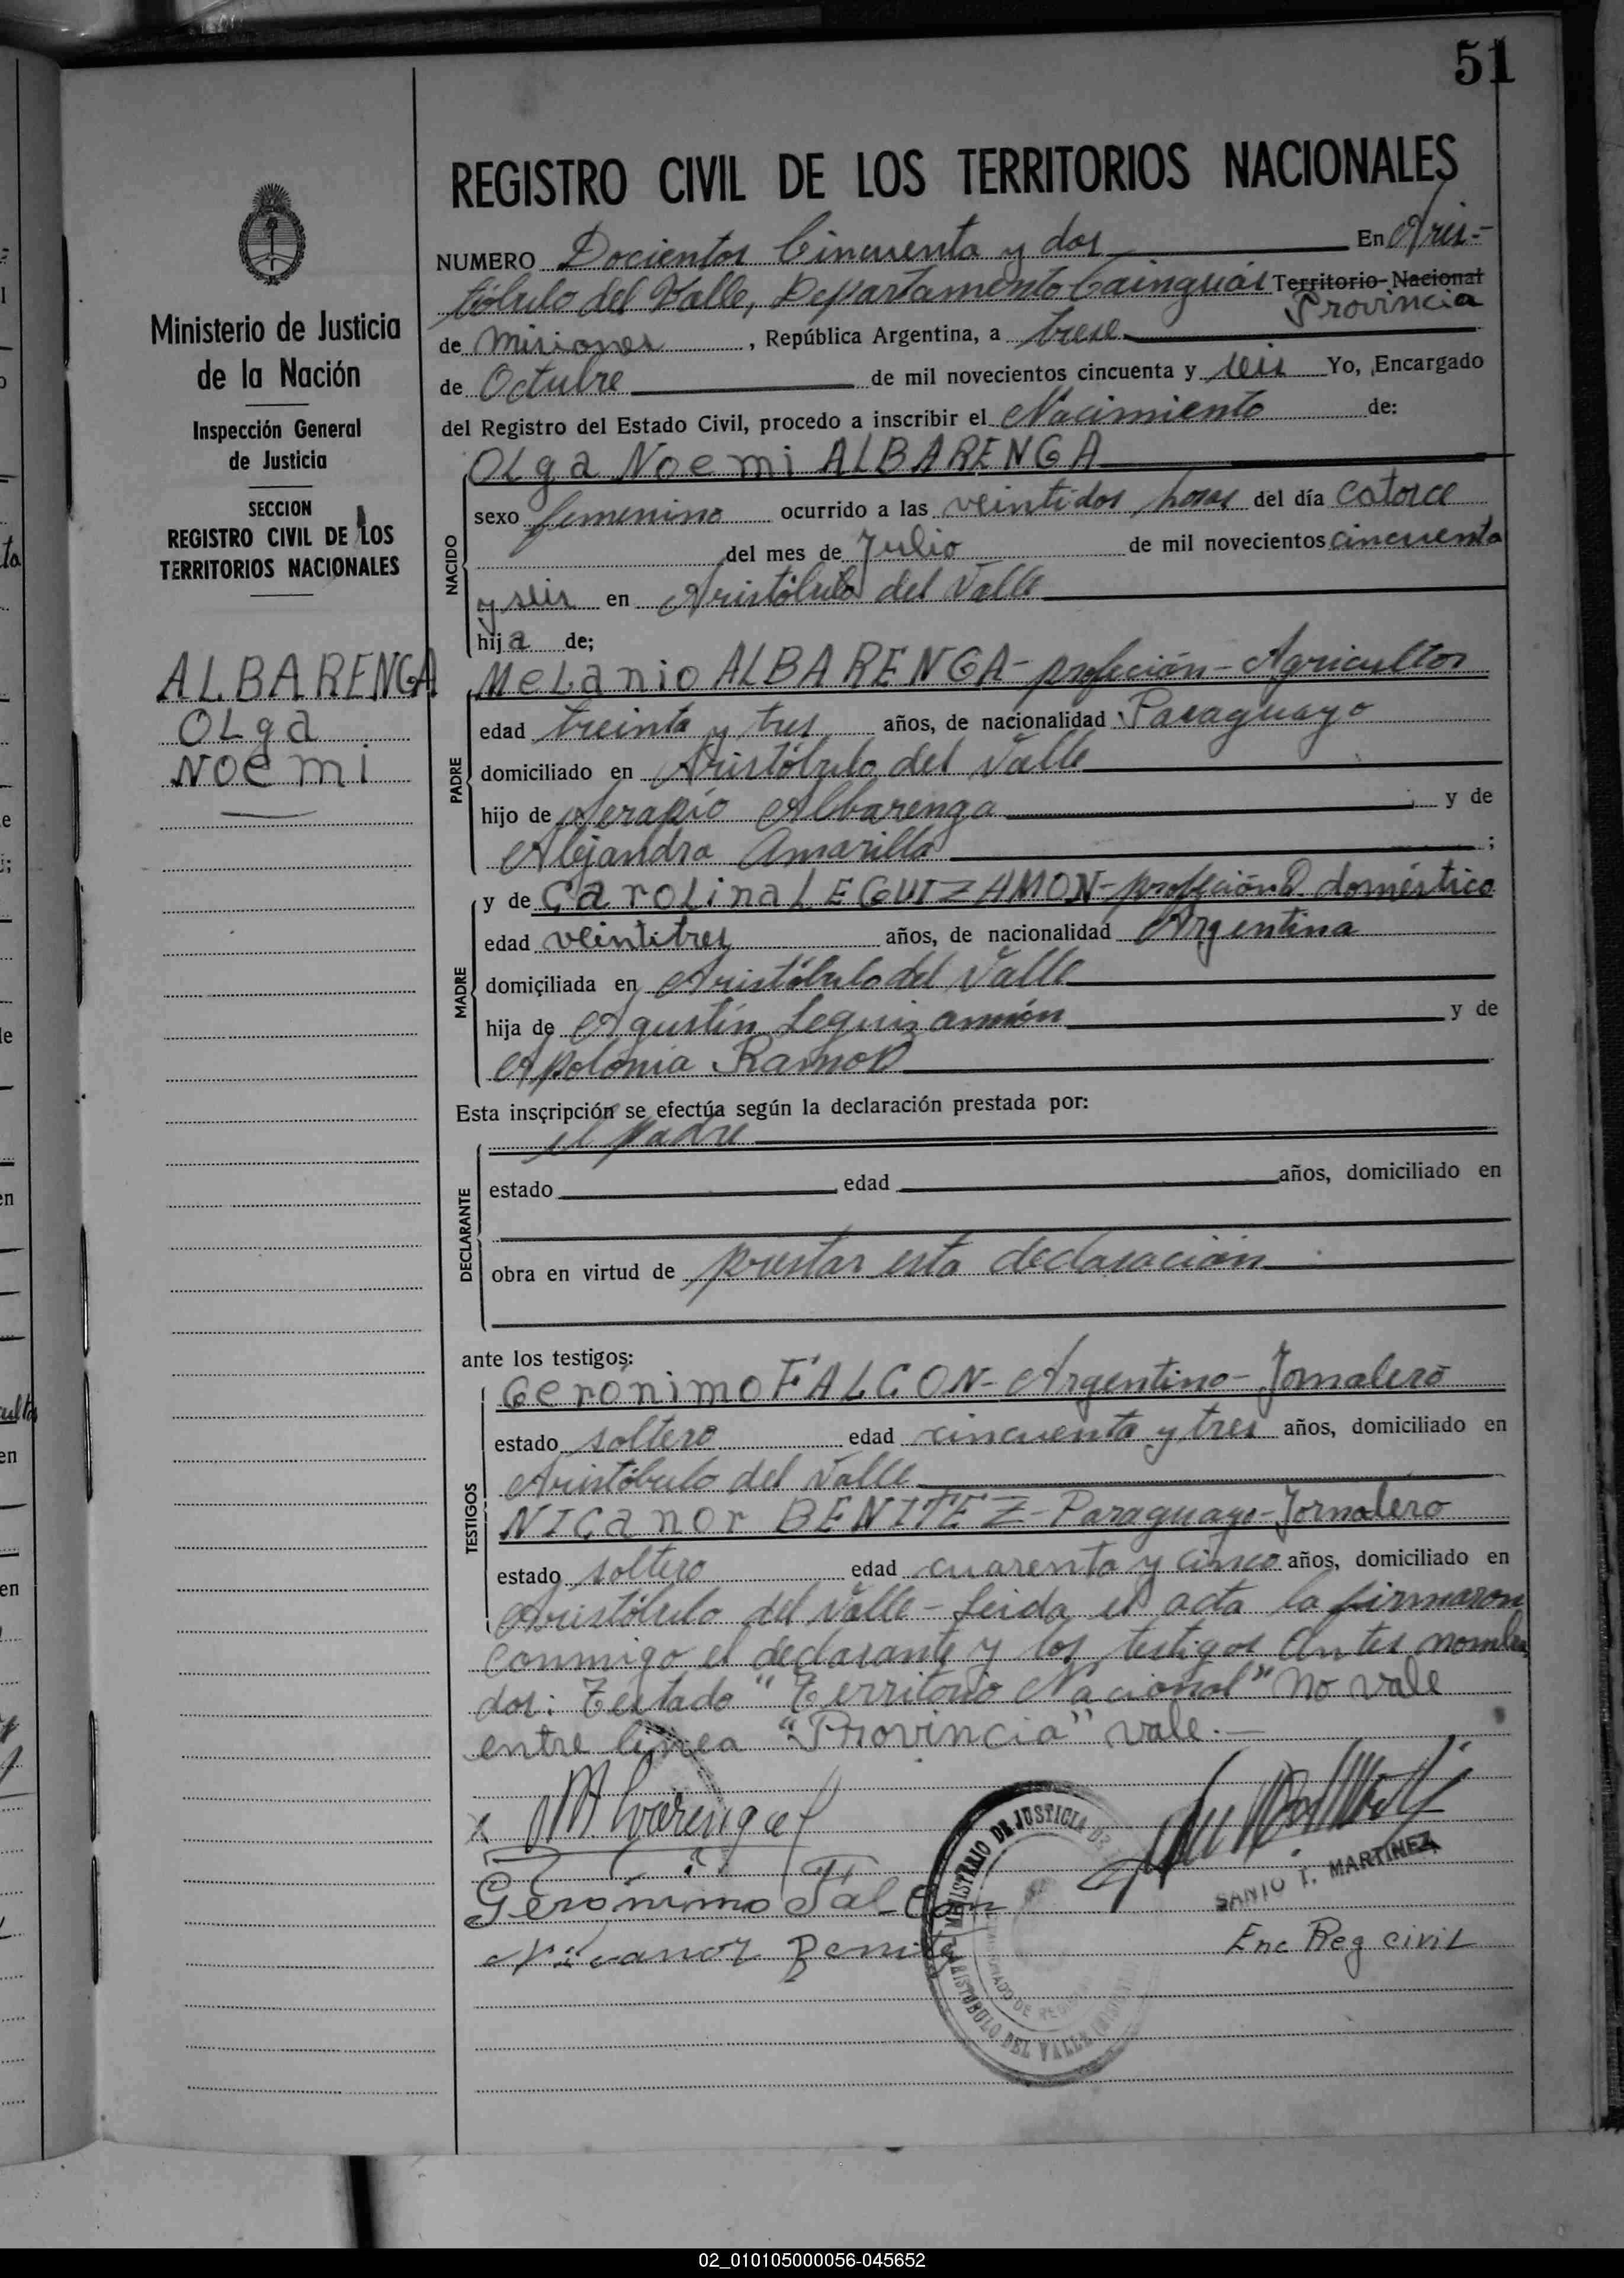 51
REGISTRO CIVIL DE LOS TERRITORIOS NACIONALES
NUMERO Docientos Cincuenta y dos En Aris-
tóbulo del Valle, Departamento Cainguás Territorio Nacional
Provincia
de Misiones, República Argentina, a trese
de Octubre de mil novecientos cincuenta y seis Yo, Encargado
del Registro del Estado Civil, procedo a inscribir el Nacimiento de:
Olga Noemi ALBARENGA
sexo femenino ocurrido a las veintidos horas del día catorce
del mes de Julio de mil novecientos cincuenta
y seis en Aristóbulo del Valle
hija de;
NACIDO
Melanio ALBARENGA - profeción - Agricultor
edad treinta y tres años, de nacionalidad Paraguayo
domiciliado en Aristóbulo del Valle
hijo de Serapio Albarenga y de
Alejandra Amarilla ;
PADRE
y de Carolina LEGUIZAMON - profeción Q. doméstico
edad veintitres años, de nacionalidad Argentina
domiciliada en Aristóbulo del Valle
hija de Agustín Leguizamón y de
Apolonia Ramos
MADRE
Esta inscripción se efectúa según la declaración prestada por:
el padre
estado edad años, domiciliado en
obra en virtud de prestar esta declaración
DECLARANTE
ante los testigos:
Gerónimo FALCON - Argentino - Jornalero
estado soltero edad cincuenta y tres años, domiciliado en
Aristóbulo del Valle
Nicanor BENITEZ - Paraguayo - Jornalero
estado soltero edad cuarenta y cinco años, domiciliado en
Aristóbulo del Valle - Leida el acta la firmaron
TESTIGOS
conmigo el declarante y los testigos antes nombra
dos: Testado "Territorio Nacional" no vale
entre linea "Provincia" vale.-
x M Alvarenga
Gerónimo Falcon
Nicanor Benitez
MINISTERIO DE JUSTICIA
ARISTOBULO DEL VALLE
SANTO T. MARTINEZ
Enc Reg civil
Ministerio de Justicia
de la Nación
Inspección General
de Justicia
SECCION
REGISTRO CIVIL DE LOS
TERRITORIOS NACIONALES
ALBARENGA
Olga
Noemi
02_010105000056-045652